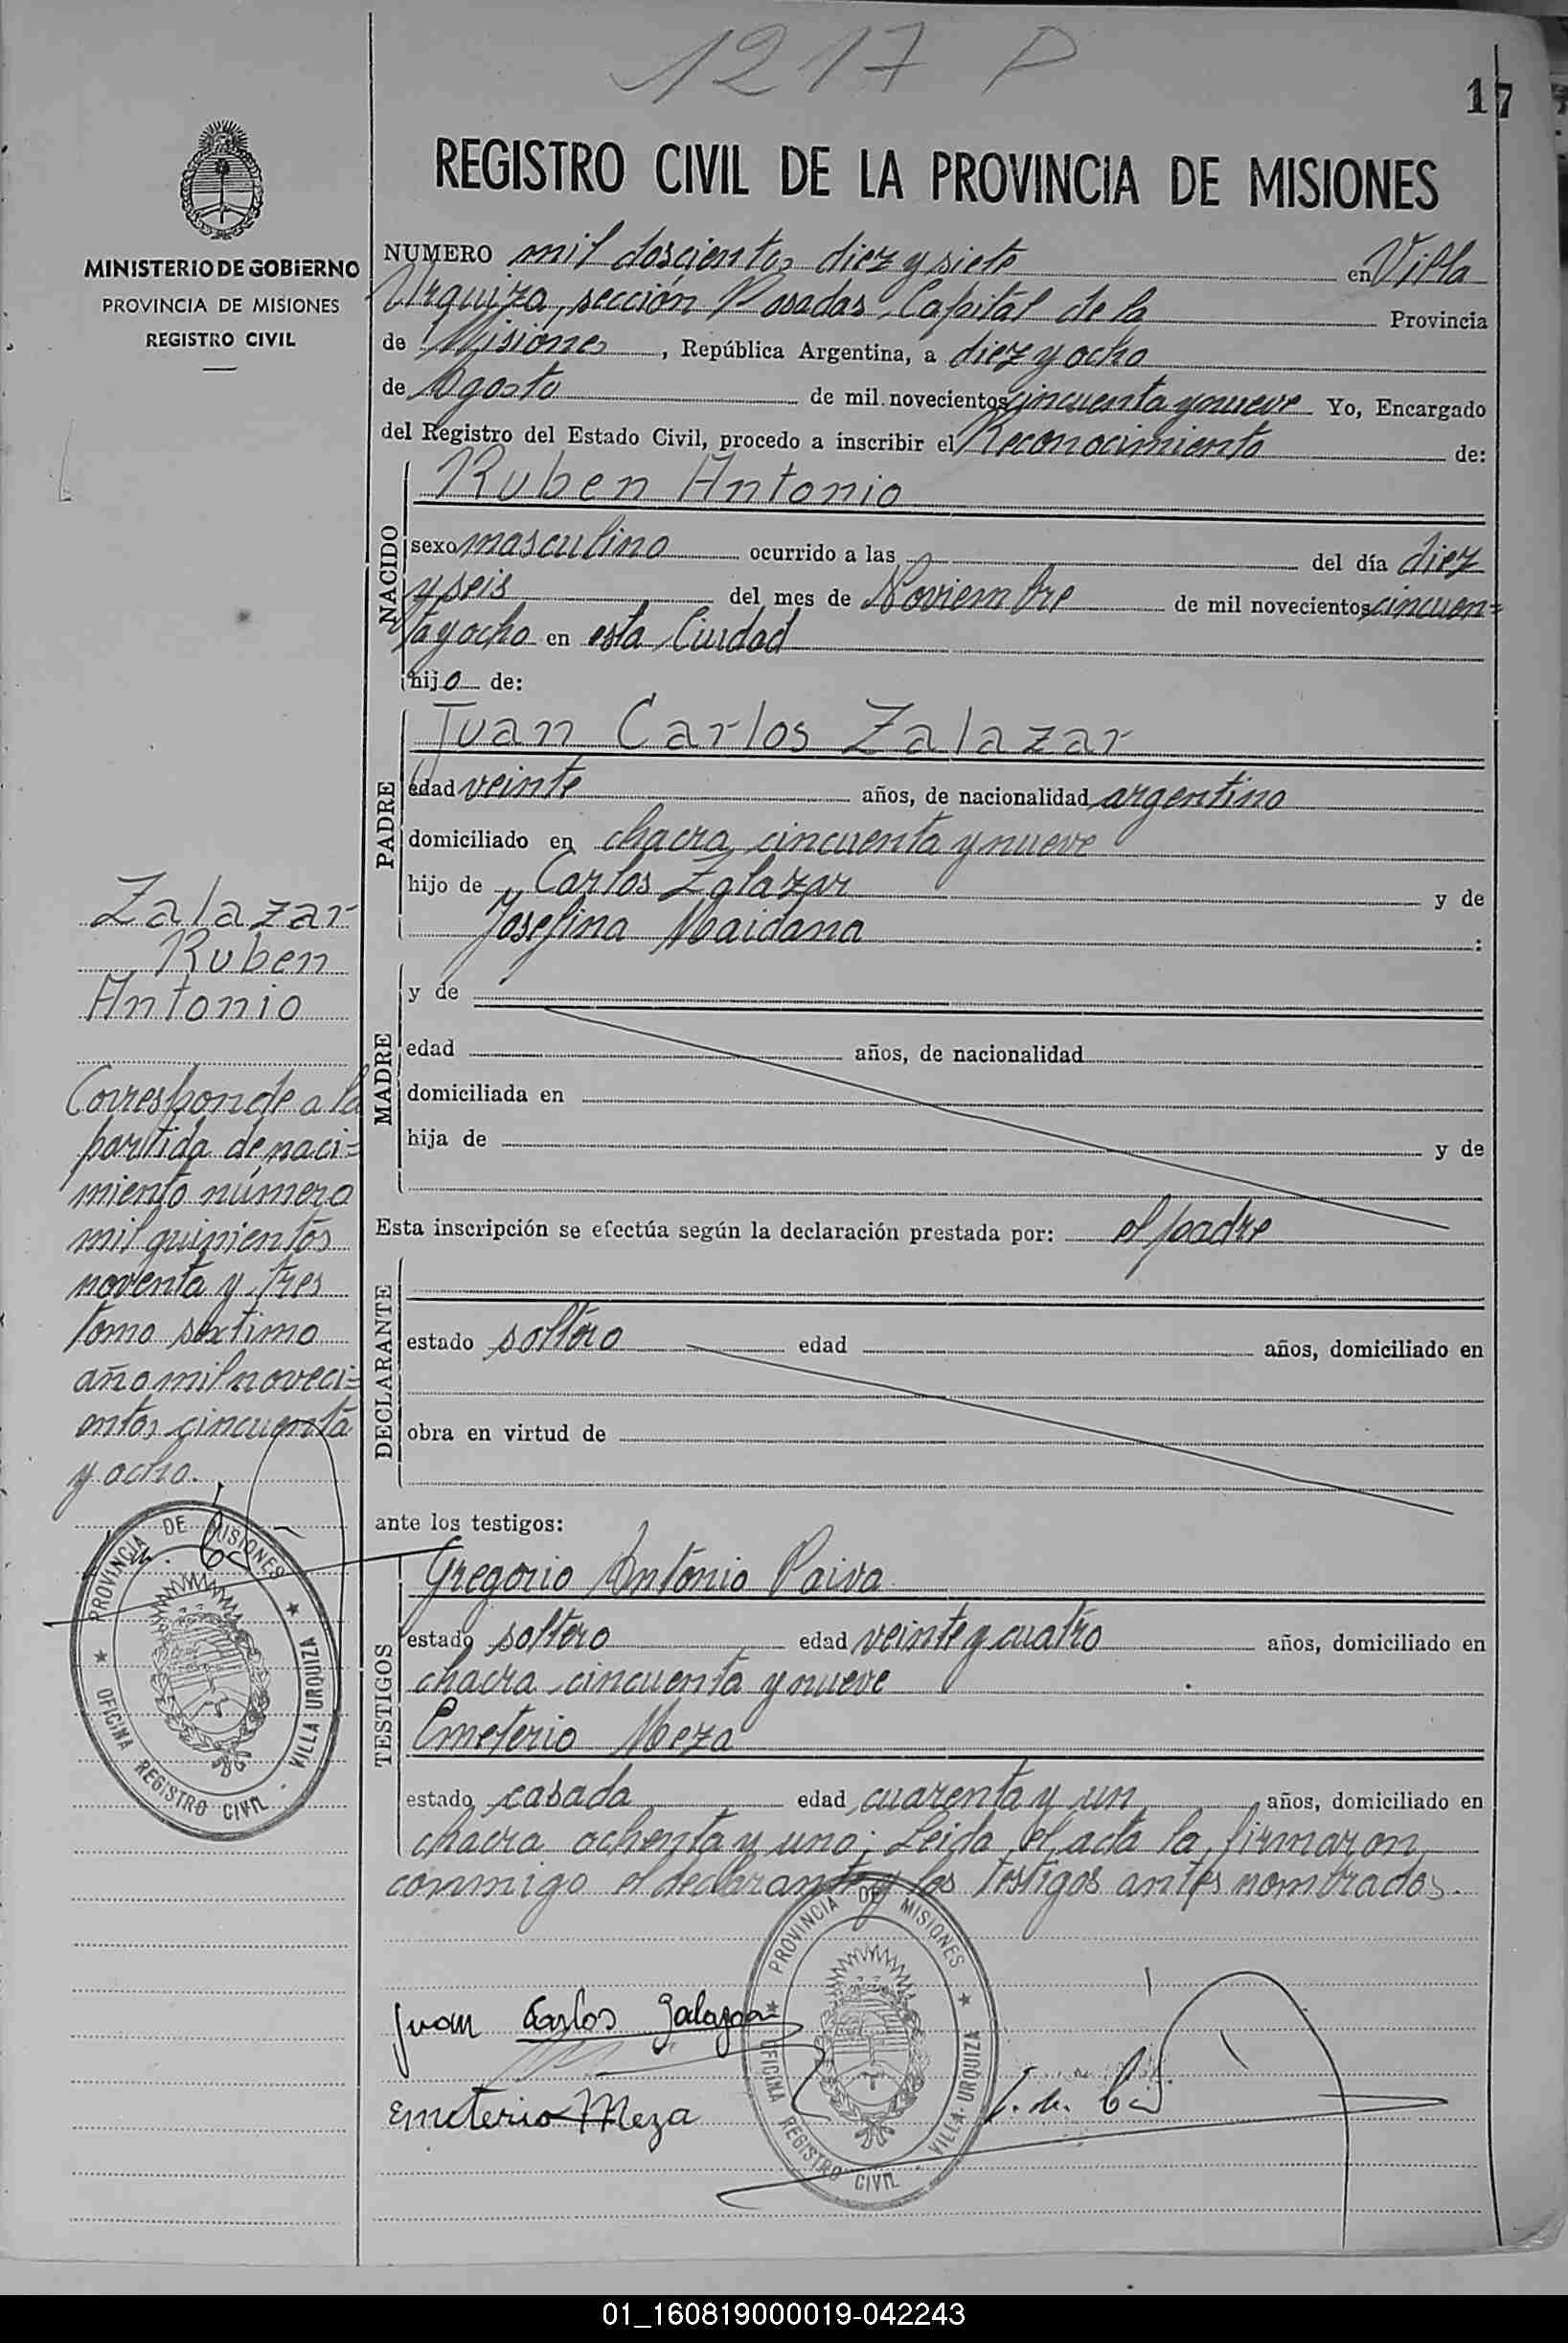 1217 P
17
MINISTERIO DE GOBIERNO
PROVINCIA DE MISIONES
REGISTRO CIVIL
REGISTRO CIVIL DE LA PROVINCIA DE MISIONES
NUMERO mil doscientos diez y siete en Villa
Urquiza, sección Posadas Capital de la Provincia
de Misiones, República Argentina, a diez y ocho
de Agosto de mil novecientos cincuenta y nueve Yo, Encargado
del Registro del Estado Civil, procedo a inscribir el Reconocimiento de:
NACIDO
Ruben Antonio
sexo masculino ocurrido a las del día diez
y seis del mes de Noviembre de mil novecientos cincuen=
ta y ocho en esta Ciudad
hijo de:
PADRE
Juan Carlos Zalazar
edad veinte años, de nacionalidad argentino
domiciliado en chacra cincuenta y nueve
hijo de Carlos Zalazar y de
Josefina Maidana :
MADRE
y de
edad años, de nacionalidad
domiciliada en
hija de y de
Esta inscripción se efectúa según la declaración prestada por: el padre
DECLARANTE
estado soltero edad años, domiciliado en
obra en virtud de
ante los testigos:
TESTIGOS
Gregorio Antonio Paiva
estado soltero edad veinte y cuatro años, domiciliado en
chacra cincuenta y nueve
Emeterio Meza
estado casada edad cuarenta y un años, domiciliado en
chacra ochenta y uno; Leida el acta la firmaron
conmigo el declarante y los testigos antes nombrados.
Zalazar
Ruben
Antonio
Corresponde a la
partida de naci=
miento número
mil quinientos
noventa y tres
tomo séxtimo
año mil noveci=
entos cincuenta
y ocho.
PROVINCIA DE MISIONES
OFICINA REGISTRO CIVIL - VILLA URQUIZA
Juan Carlos Zalazar
Emeterio Meza
PROVINCIA DE MISIONES
OFICINA REGISTRO CIVIL - VILLA URQUIZA
01_160819000019-042243